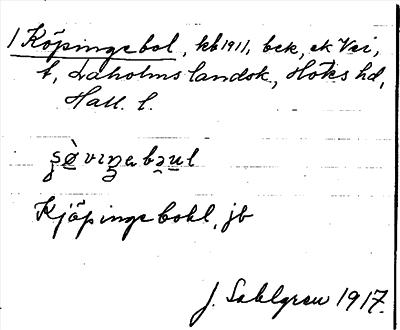 1 Köpingebol, kb 1911, bek, ek Vei,
t, Laholms landsk., Höks hd,
Hall. l.
Kjöpinge bohl, jb
J. Sahlgren 1917.